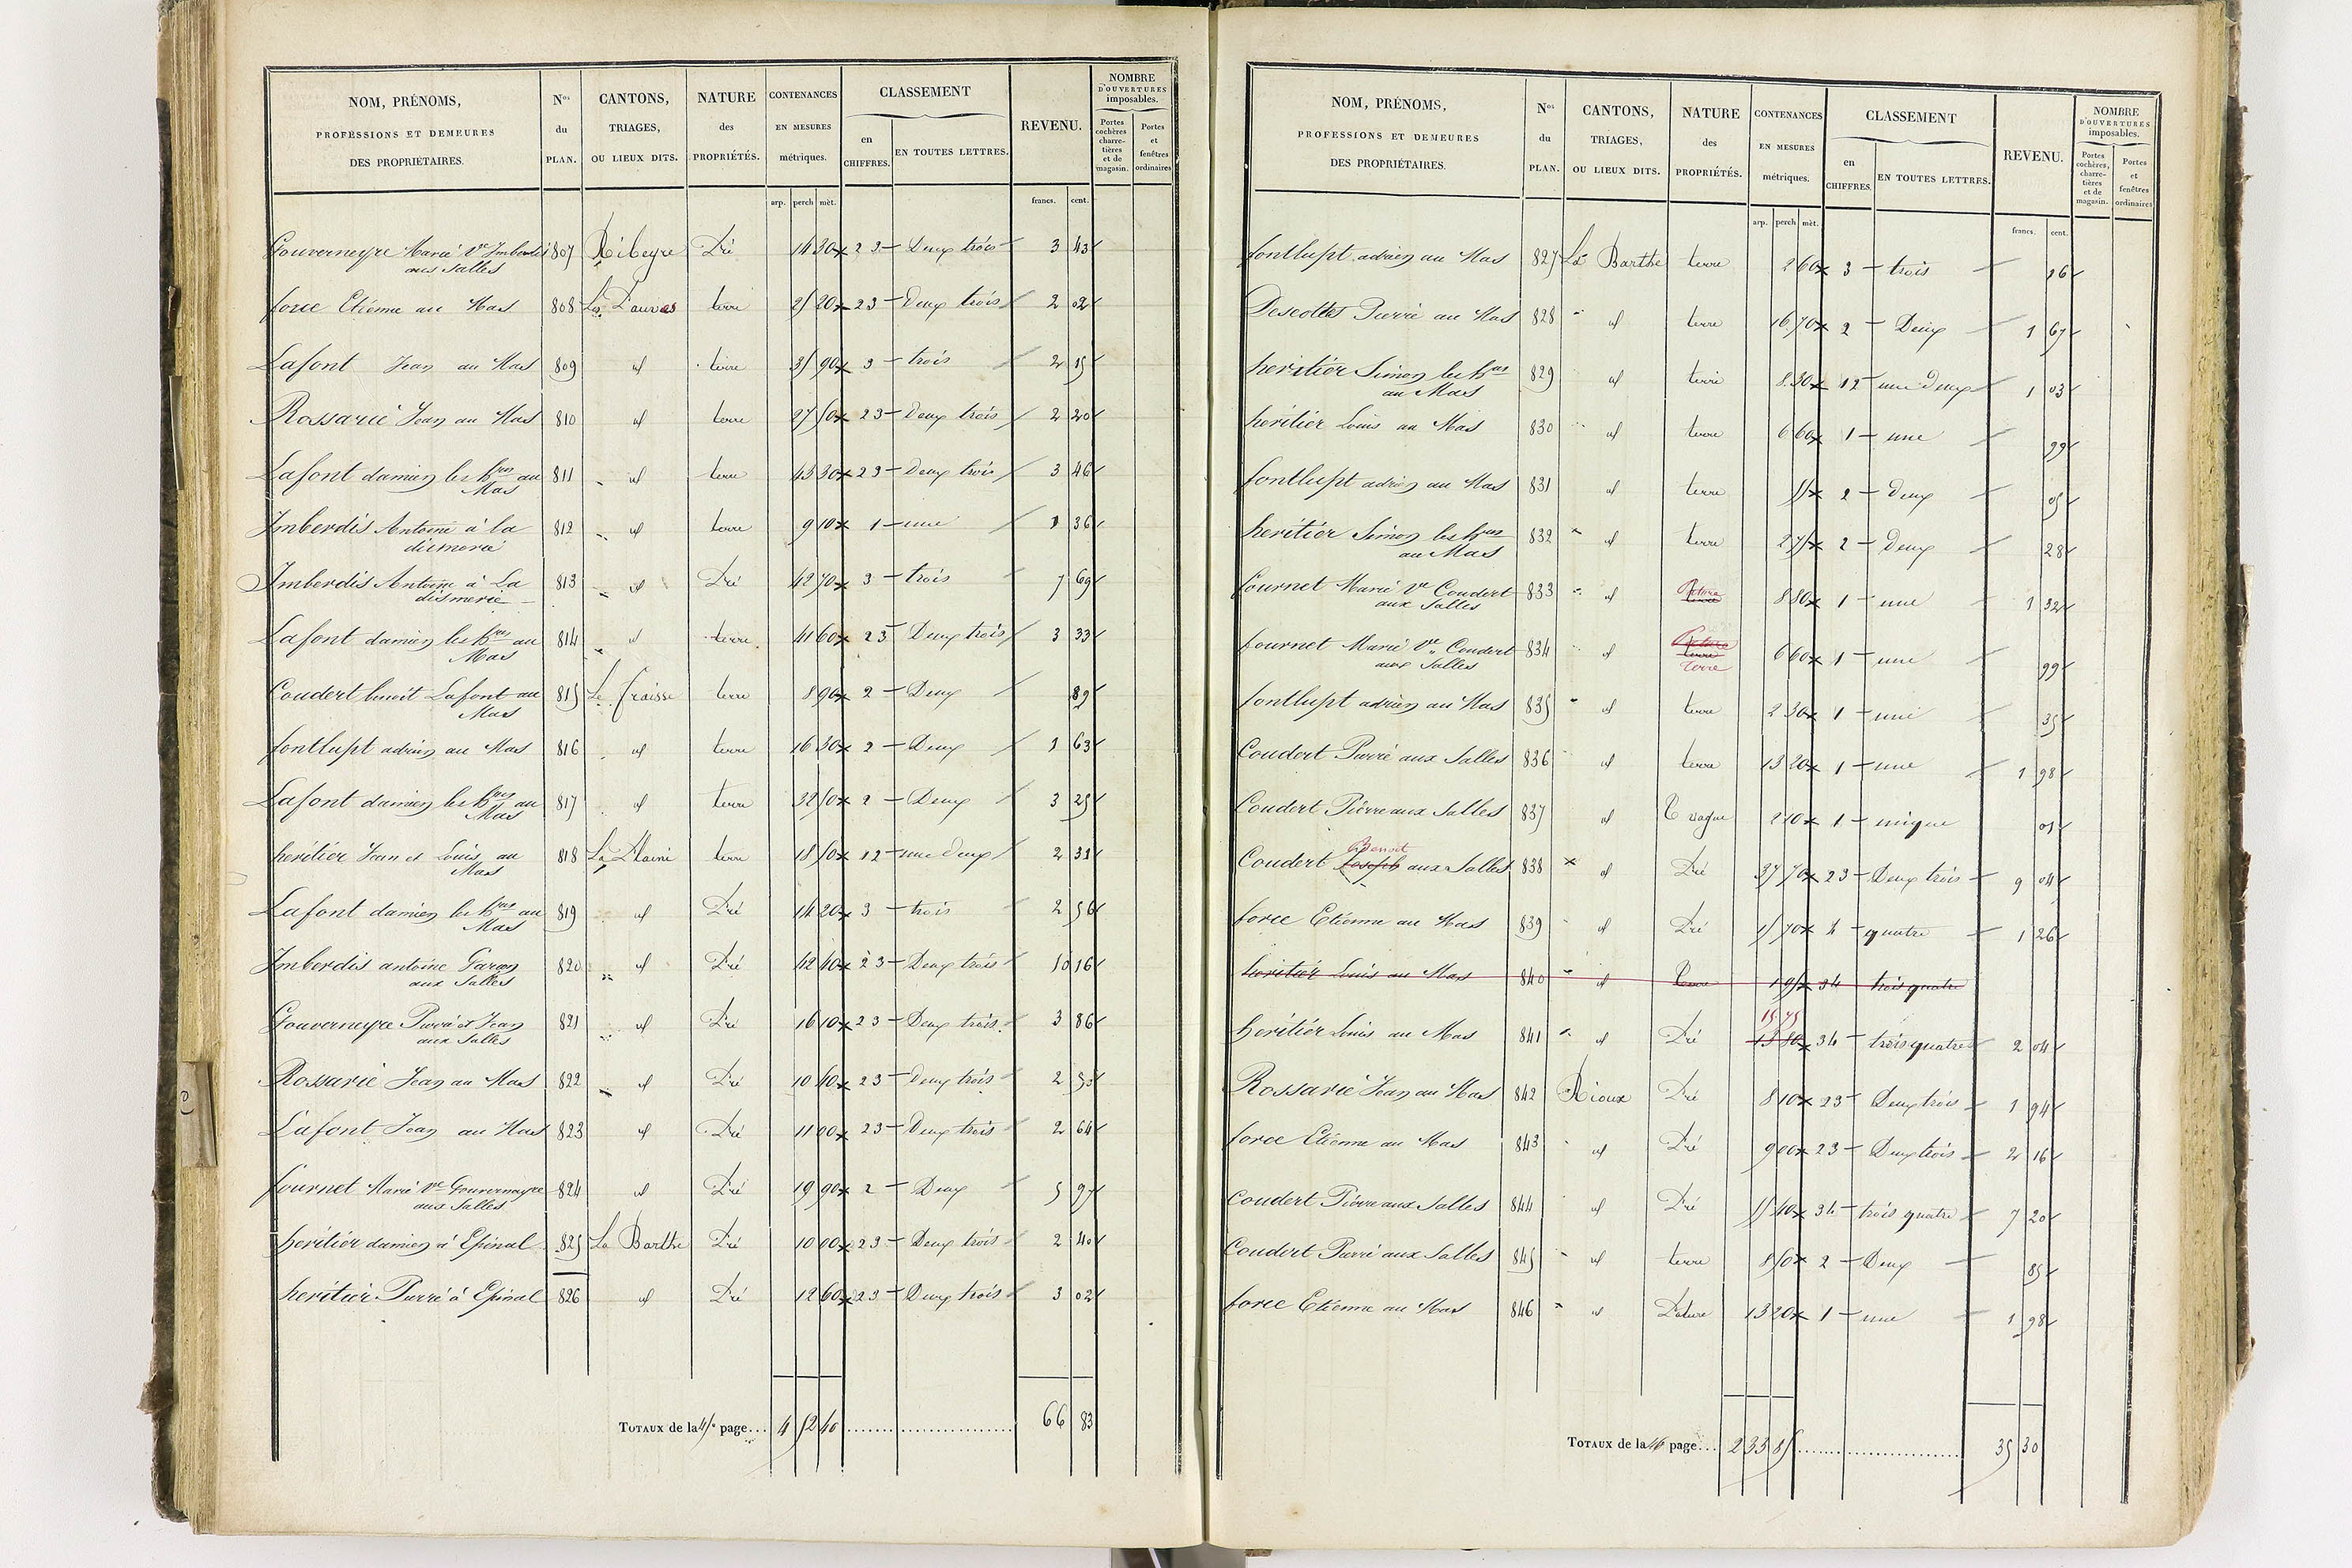 NOM, PRÉNOMS,
PROFESSIONS ET DEMEURES
DES PROPRIÉTAIRES.
Nos
du
PLAN.
CANTONS,
TRIAGES,
OU LIEUX DITS.
NATURE
des
PROPRIÉTÉS.
CONTENANCES
EN MESURES
métriques.
CLASSEMENT
en
CHIFFRES.
EN TOUTES LETTRES.
REVENU.
NOMBRE
D'OUVERTURES
imposables.
Portes
cochères
charre-
tières
et de
magasin.
Portes
et
fenêtres
ordinaires
arp. perch mèt. francs. cent.
Gouverneyre Marie Ve Imberdis 807 Ribeyre Pré 14 30 23 Deux trois 3 43
aux salles
force Etienne au Mas 808 terre 25 20 23 Deux trois 2 02
Lafont Jean au Mas 809 id terre 35 90 3 trois 2 15
Rossarie Jean au Mas 810 id terre 27 50 23 Deux trois 2 20
Lafont damien les hers au 811 id terre 43 30 23 Deux trois 3 46
Mas
Imberdis Antoine à la 812 id terre 9 10 1 une 1 36
dismerie
Imberdis Antoine à La 813 id Pré 42 70 3 trois 7 69
dismerie
Lafont damien les hers au 814 id terre 41 60 23 Deux trois 3 33
Mas
Coudert benoit Lafont au 815 Le fraisse terre 8 90 2 Deux 89
Mas
fontlupt adrien au Mas 816 id terre 16 30 2 Deux 1 63
Lafont damien les hers au 817 id terre 32 50 2 Deux 3 25
Mas
heritier Jean et Louis au 818 La Plaine terre 18 50 12 une deux 2 31
Mas
Lafont damien les hers au 819 id Pré 14 20 3 trois 2 56
Mas
Imberdis antoine Garon 820 id Pré 42 40 23 Deux trois 10 16
aux Salles
Gouverneyre Pierre et Jean 821 id Pré 16 10 23 Deux trois 3 86
aux Salles
Rossarie Jean au Mas 822 id Pré 10 40 23 deux trois 2 53
Lafont Jean au Mas 823 id Pré 11 00 23 Deux trois 2 64
fournet Marie ve Gouverneyre 824 id Pré 19 90 2 Deux 5 97
aux Salles
heritier damien à Epinal 825 La Barthe Pré 10 00 23 Deux trois 2 40
heritier Pierre à Epinal 826 id Pré 12 60 23 Deux trois 3 02
TOTAUX de la 45e page... 4 52 40 66 83
NOM, PRÉNOMS,
PROFESSIONS ET DEMEURES
DES PROPRIÉTAIRES.
Nos
du
PLAN.
CANTONS,
TRIAGES,
OU LIEUX DITS.
NATURE
des
PROPRIÉTÉS.
CONTENANCES
EN MESURES
métriques.
CLASSEMENT
en
CHIFFRES.
EN TOUTES LETTRES.
REVENU.
NOMBRE
D'OUVERTURES
imposables.
Portes
cochères,
charre-
tières
et de
magasin.
Portes
et
fenêtres
ordinaires
arp. perch mèt. francs. cent.
fontlupt adrien au Mas 827 La Barthe terre 2 60 3 trois 16
Descottes Pierre au Mas 828 id terre 16 70 2 Deux 1 67
heritier Simon les hers 829 id terre 8 30 12 une deux 1 03
au Mas
heritier Louis au Mas 830 id terre 6 60 1 une 99
fontlupt adrien au Mas 831 id terre 2 Deux 05
heritier Simon les hers 832 id terre 2 75 2 Deux 28
au Mas
fournet Marie Ve Coudert 833 id Pature terre 8 80 1 une 1 32
aux Salles
fournet Marie Ve Coudert 834 id Pature terre terre 6 60 1 une 99
aux Salles
fontlupt adrien au Mas 835 id terre 2 30 1 une 35
Coudert Pierre aux Salles 836 id terre 13 20 1 une 1 98
Coudert Pierre aux Salles 837 id T vague 2 10 1 unique 01
Benoit
Coudert Joseph aux Salles 838 id Pré 37 70 23 Deux trois 9 04
force Etienne au Mas 839 id Pré 15 70 4 quatre 1 26
heritier Louis au Mas 840 id Terre 1 95 34 trois quatre
15 75
heritier Louis au Mas 841 id Pré 13 80 34 trois quatre 2 04
Rossarie Jean au Mas 842 Rioux Pré 8 10 23 Deux trois 1 94
force Etienne au Mas 843 id Pré 9 00 23 Deux trois 2 16
Coudert Pierre aux Salles 844 id Pré 55 40 34 trois quatre 7 20
Coudert Pierre aux Salles 845 id terre 8 50 2 Deux 85
force Etienne au Mas 846 id Pature 13 20 1 une 1 98
TOTAUX de la 46 page... 2 33 85 35 30